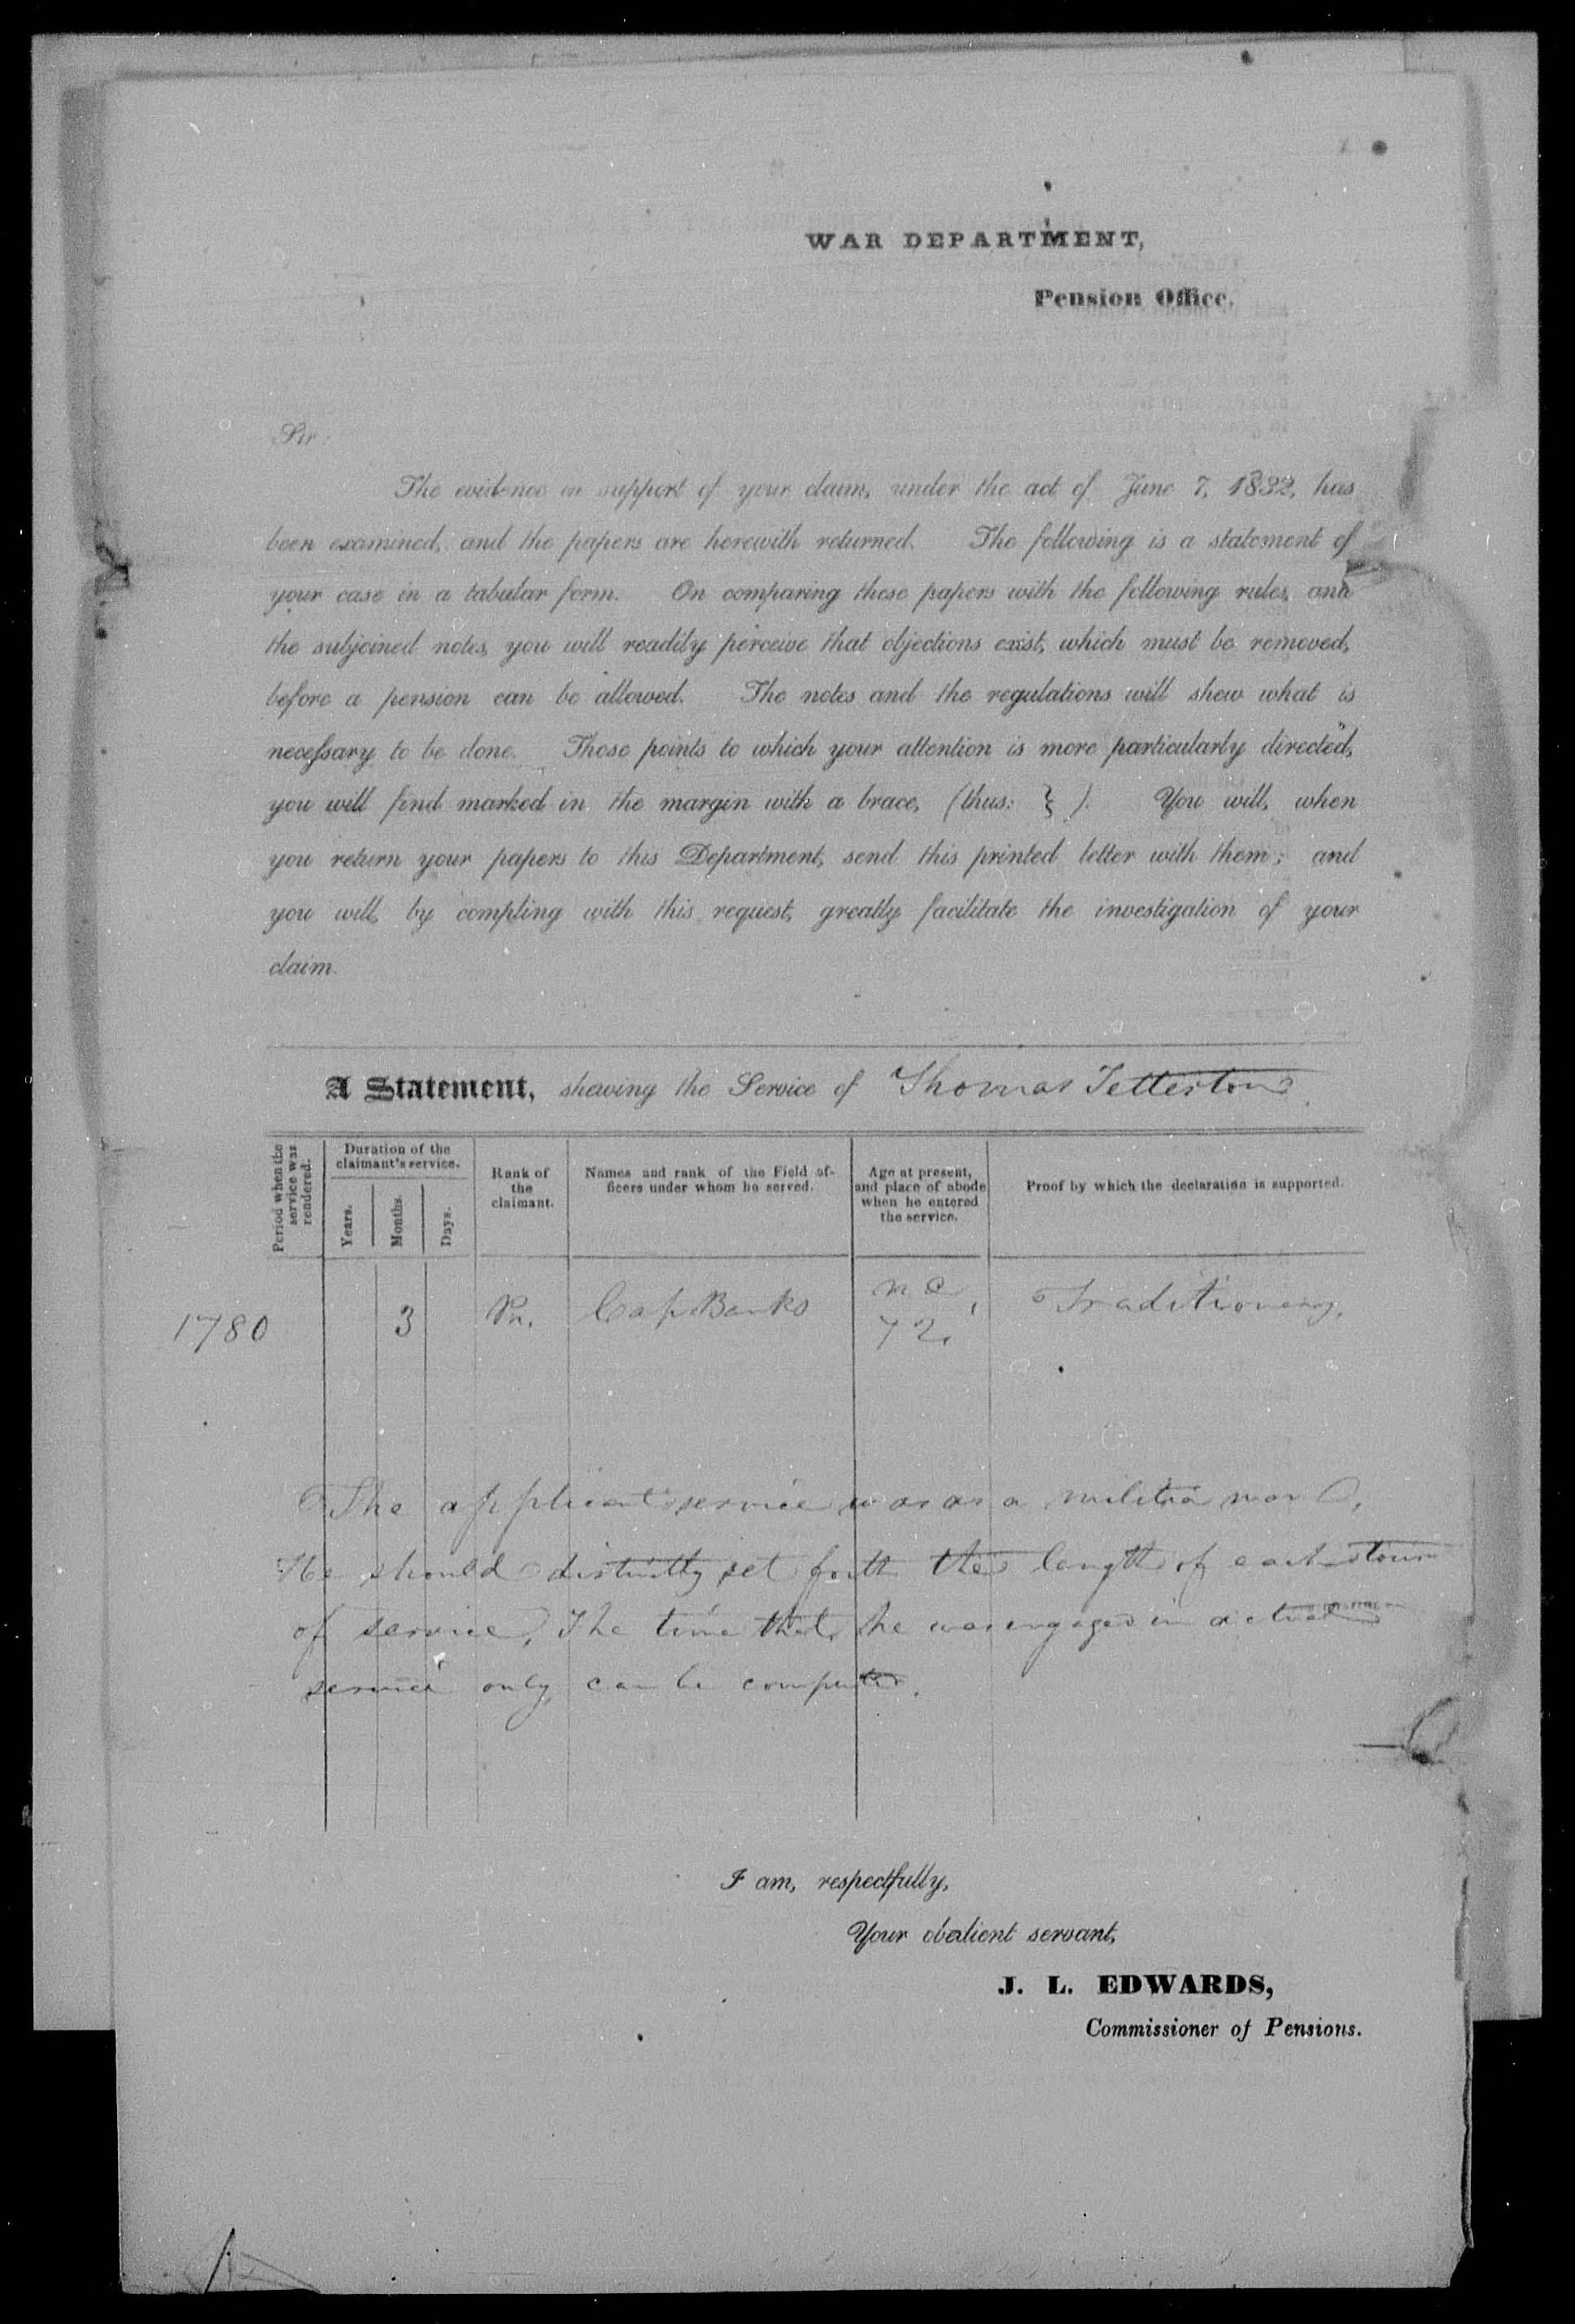 WAR DEPARTMENT,
Pension Office.
Sir:
The evidence in support of your claim, under the act of June 7, 1832, has
been examined, and the papers are herewith returned. The following is a statement of
your case in a tabular form. On comparing these papers with the following rules, and
the subjoined notes, you will readily perceive that objections exist, which must be removed,
before a pension can be allowed. The notes and the regulations will shew what is
necessary to be done. Those points to which your attention is more particularly directed,
you will find marked in the margin with a brace, (thus: } ). You will, when
you return your papers to this Department, send this printed letter with them; and
you will, by compling with this request, greatly facilitate the investigation of your
claim.
A Statement, shewing the Service of Thomas Tetterton
Period when the service was rendered.
Duration of the claimant's service.
Years.
Months.
Days.
Rank of the claimant.
Names and rank of the Field officers under whom he served.
Age at present, and place of abode when he entered the service.
Proof by which the declaration is supported.
1780 3 Pr. Cap Banks N C, 72. Traditionery.
The applicant service was as a militia man.
He should distinctly set forth the length of each tour
of service, The time that he was engaged in actual
service only can be computed.
I am, respectfully,
Your obedient servant,
J. L. EDWARDS,
Commissioner of Pensions.